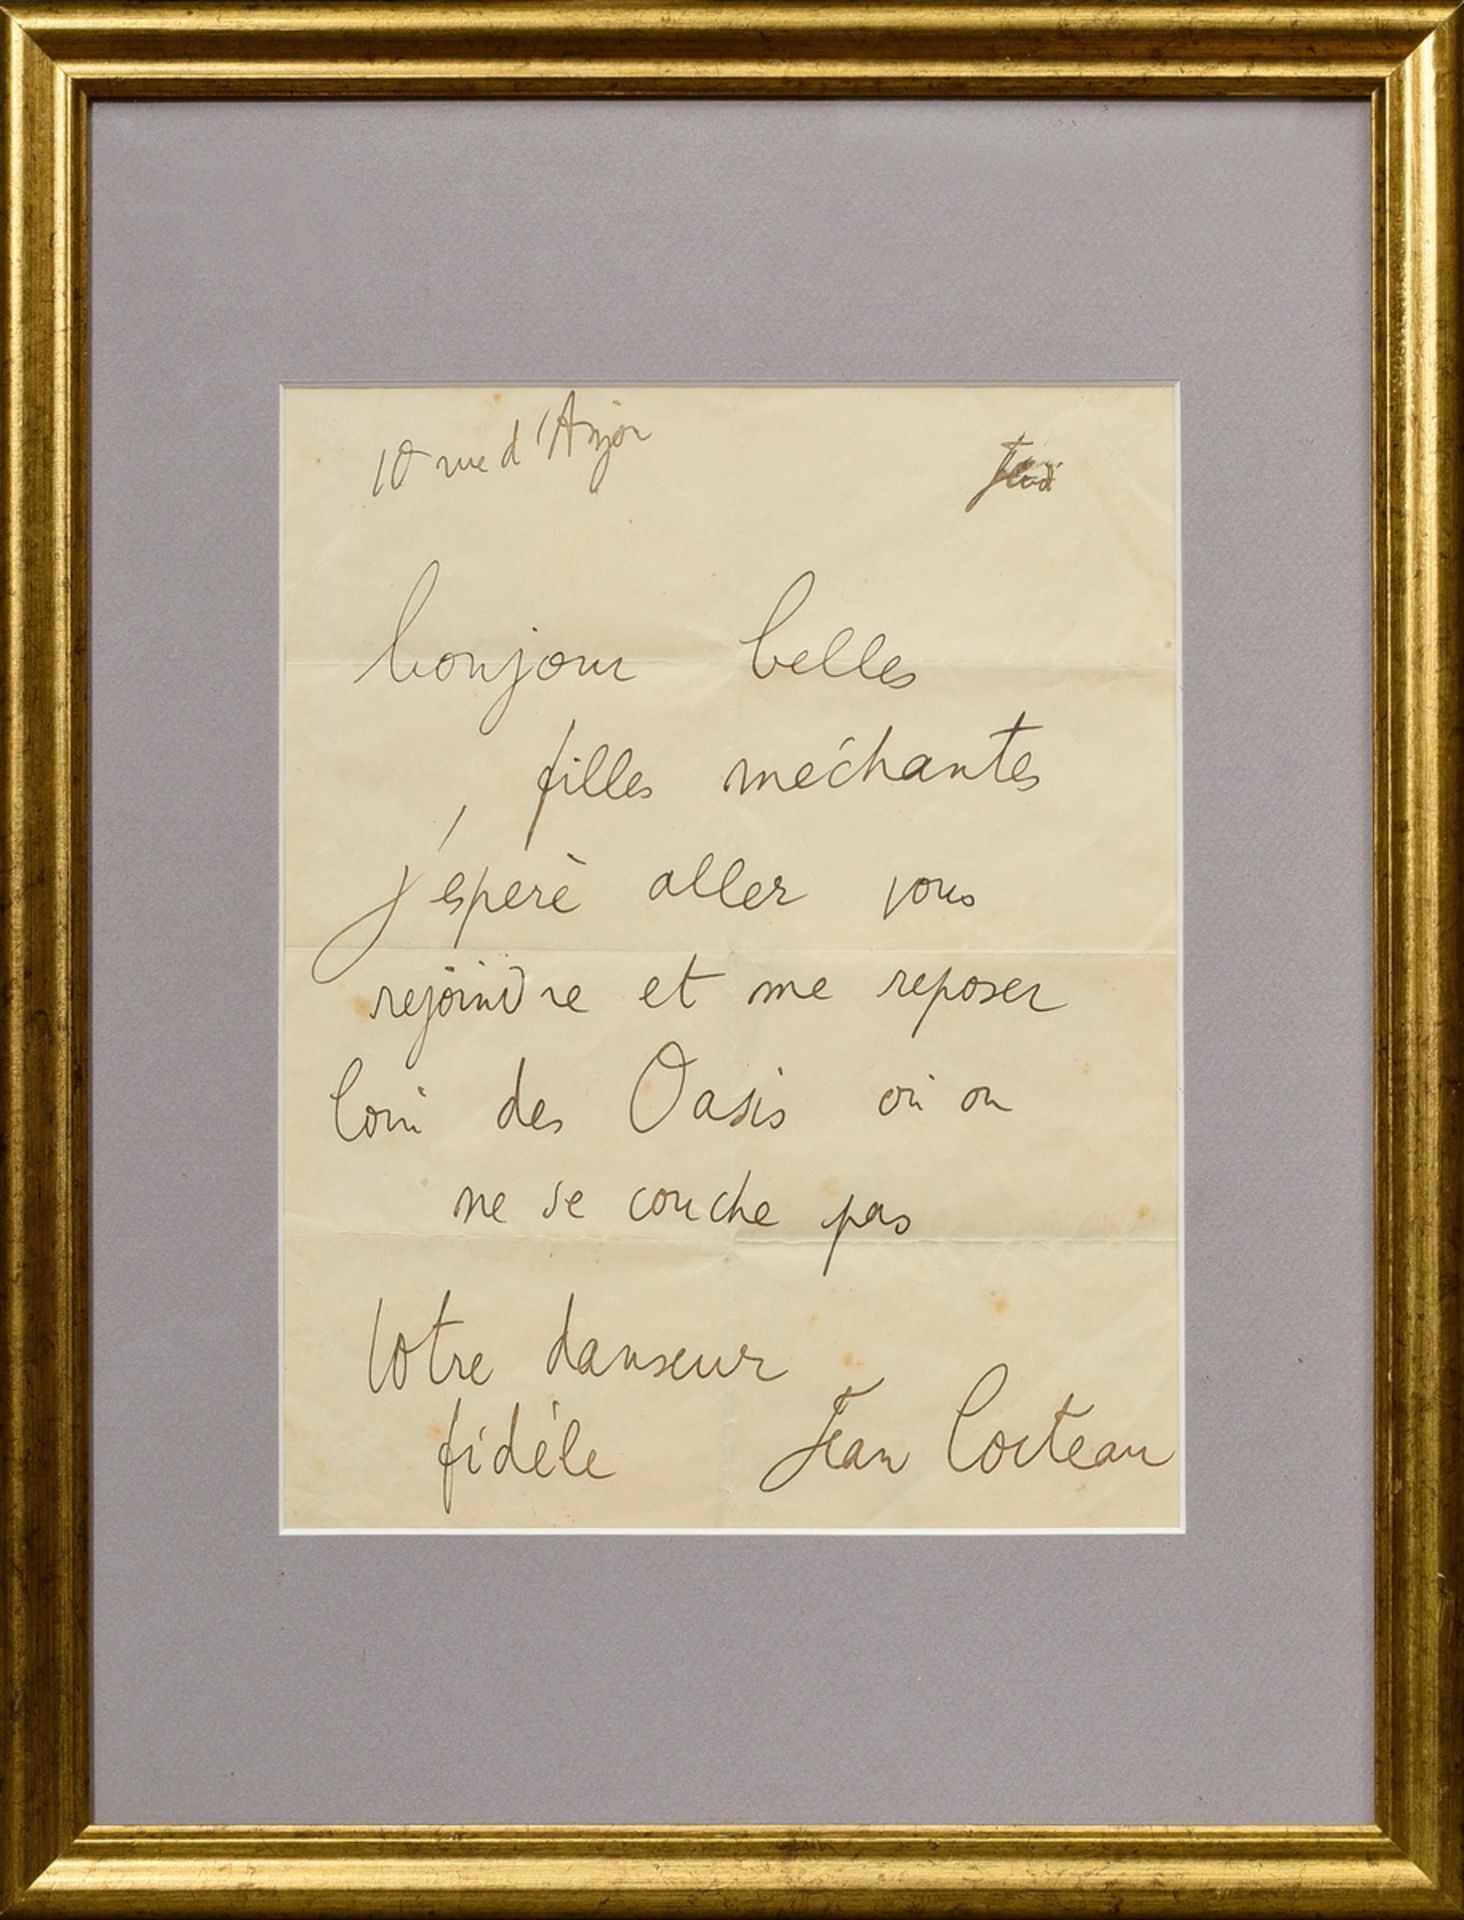 10 rue d'Anjou
Jeudi
bonjour belles
filles méchantes
j'espère aller vous
rejoindre et me reposer
loin des Oasis où on
ne se couche pas
Votre danseur
fidèle Jean Cocteau